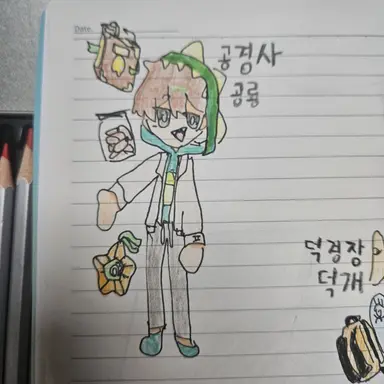 Date.
공경사
공룡
덕경장
덕개